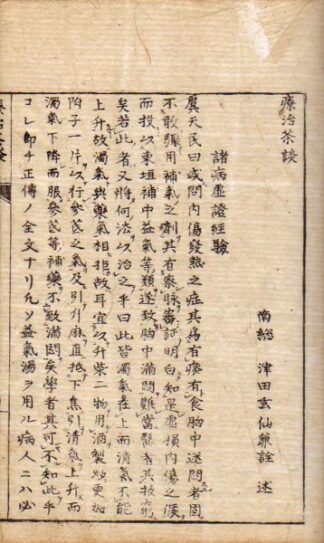 療治茶談
南総 津田玄仙兼詮 述
諸病虚證經驗
虞天民曰或問内傷發熱之症其爲有痰有食胸中迷悶者固
不敢驟用補氣之劑其有衆脉蓄証明白知是虚損内傷之候
而投以東垣補中益氣等類遂致胸中滿悶難當醫者其技窮
矣若此者又將何法以治之乎曰此皆濁氣在上而清氣不能
上升故濁氣與藥氣相拒故耳宜以升柴二物用酒製炒更加
附子一片以行參芪之氣及引升麻直抵下焦引清氣上升而
濁氣下降而服參芪等補藥不致滿悶矣學者其可不知此乎
コレ即チ正傳ノ全文ナリ凡ソ益氣湯ヲ用ル病人ニハ必